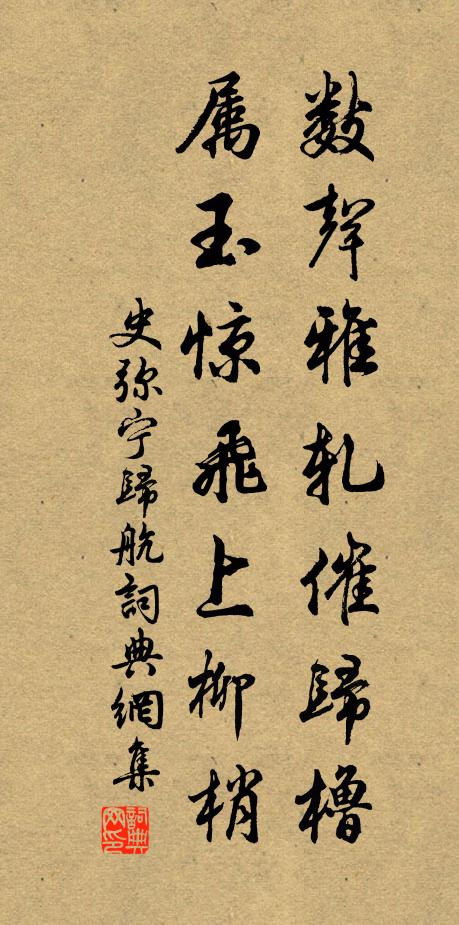 数聲雅軋催歸櫓
属玉惊飛上柳梢
史弥宁歸航詞典網集
詞典网印